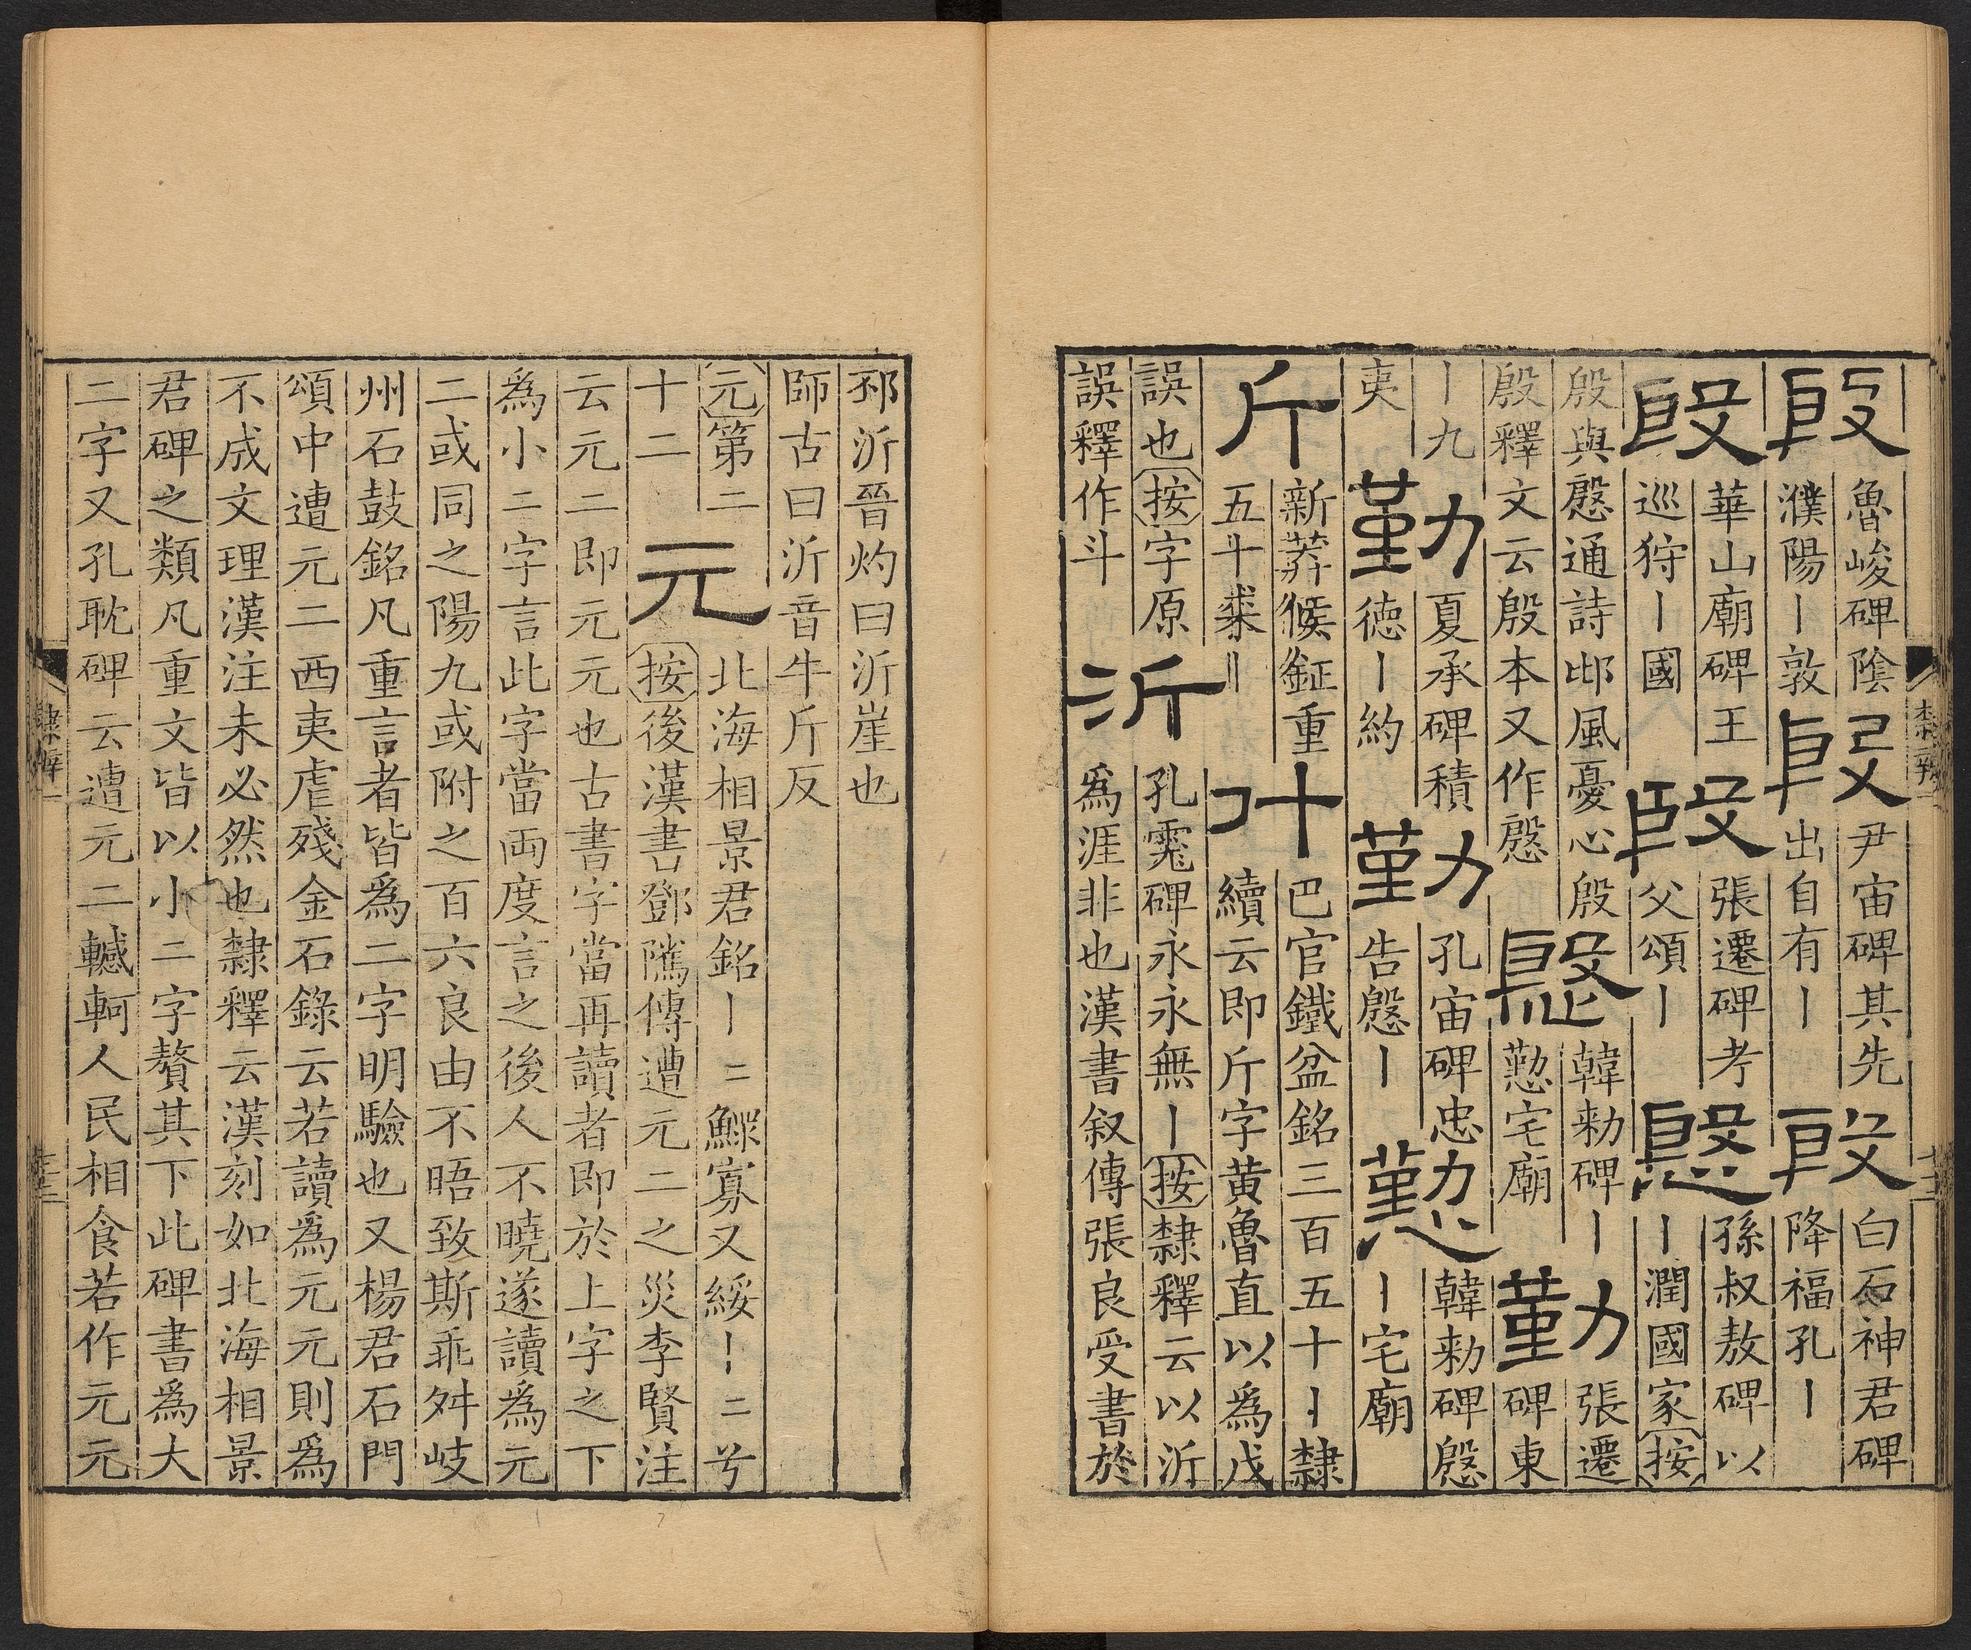 殷
魯峻碑陰
濮陽丨敦
殷
尹宙碑其先
出自有丨
殷
白石神君碑
降福孔丨
殷
華山廟碑王
巡狩丨國
殷
張遷碑考
父頌丨
慇
孫叔敖碑以
丨潤國家按
殷與慇通詩邶風憂心殷
殷釋文云殷本又作慇
慇
韓勑碑丨
懃宅廟
勤
張遷
碑東
丨九
夷
勤
夏承碑積
德丨約
勤
孔宙碑忠
告慇丨
懃
韓勑碑慇
丨宅廟
斤
新莽候鉦重
五十桼〢
斤
巴官鐵盆銘三百五十丨隸
續云即斤字黄魯直以為戊
誤也按字原
誤釋作斗
沂
孔霮碑永永無丨按隸釋云以沂
爲涯非也漢書叙傳張良受書於
邳沂晉灼曰沂崖也
師古曰沂音牛斤反
元第二
十二
元
北海相景君銘丨二鰥寡又綏丨二兮
按後漢書鄧騭傳遭元二之災李賢注
云元二即元元也古書字當再讀者即於上字之下
為小二字言此字當兩度言之後人不曉遂讀為元
二或同之陽九或附之百六良由不晤致斯乖舛岐
州石鼓銘凡重言者皆爲二字明驗也又楊君石門
頌中遭元二西夷虐殘金石錄云若讀爲元元則爲
不成文理漢注未必然也隸釋云漢刻如北海相景
君碑之類凡重文皆以小二字贅其下此碑書爲大
二字又孔耽碑云遭元二轗軻人民相食若作元元